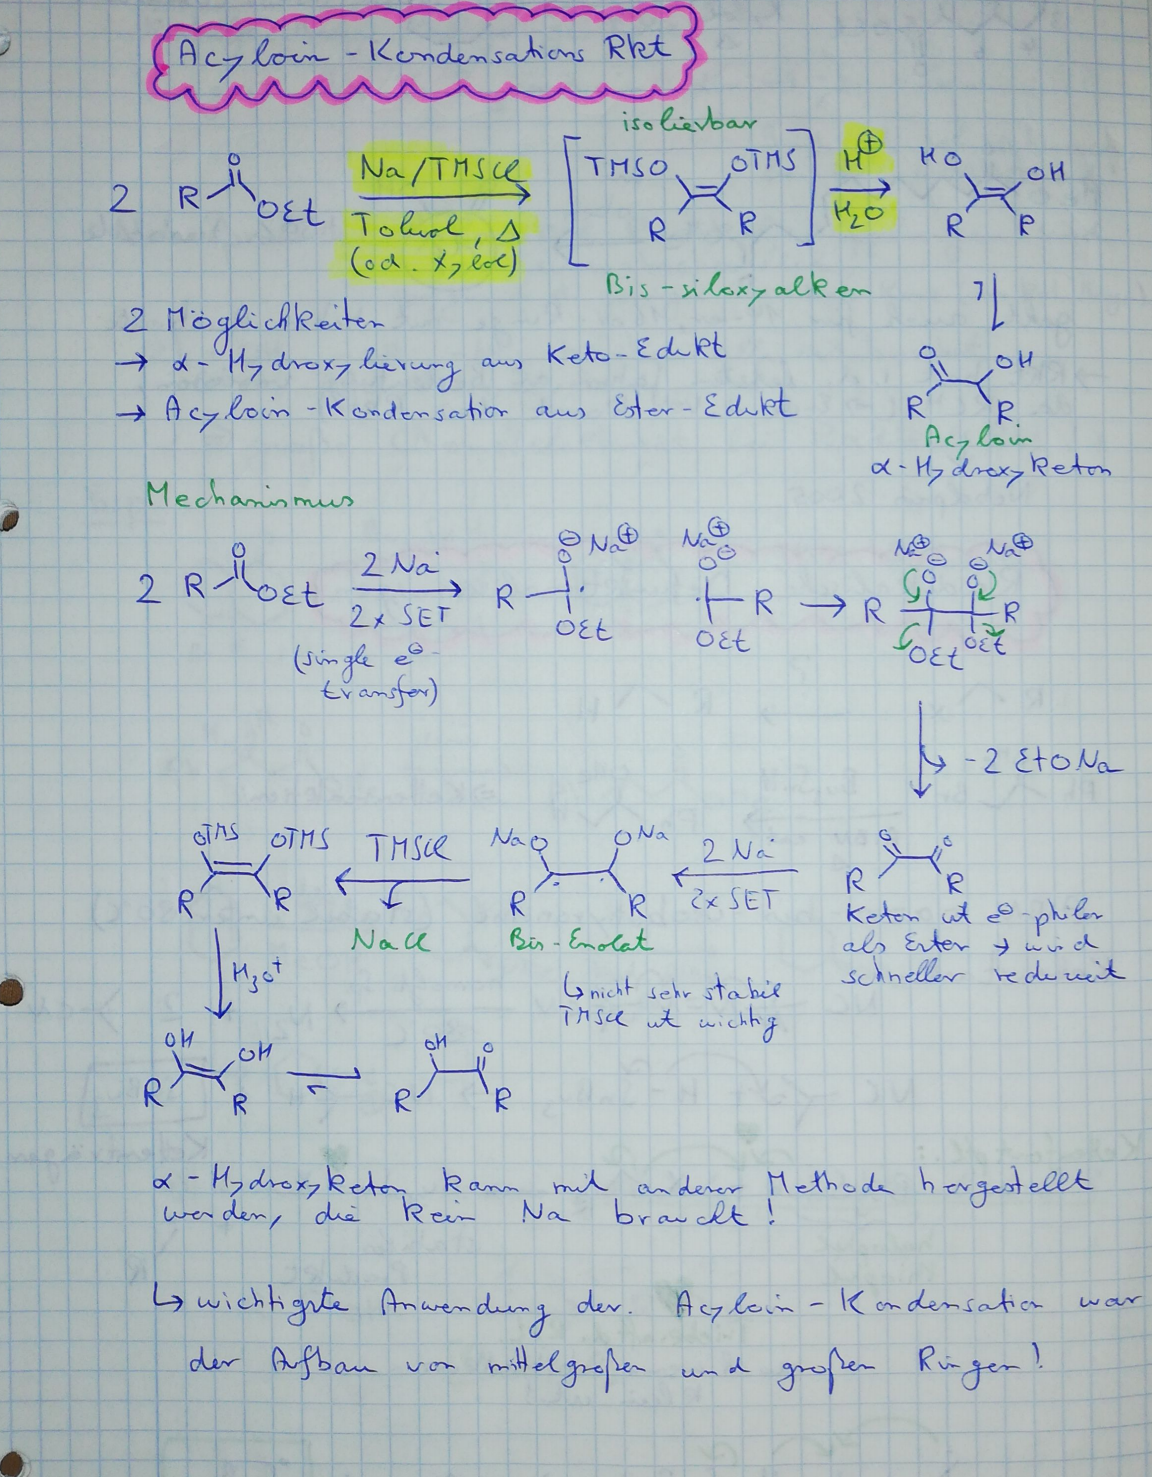 Acyloin - Kondensations Rkt
isolierbar
2 R O OEt Na/TMSCl [ TMSO OTMS R R ] H⊕ HO OH R R
Toluol, Δ H2O
(od. Xylol)
Bis-siloxyalken
2 Möglichkeiten
→ α-Hydroxylierung aus Keto-Edukt
→ Acyloin-Kondensation aus Ester-Edukt
O OH R R
Acyloin
α-Hydroxyketon
Mechanismus
2 R O OEt 2 Na R O⊖ Na⊕ · OEt Na⊕ O⊖ · R OEt → R Na⊕ ⊖O O⊖ Na⊕ R OEt OEt
2x SET
(single e⊖-
transfer)
- 2 EtONa
OTMS OTMS R R TMSCl NaO ONa R R 2 Na O O R R
NaCl Bis-Enolat 2x SET
Keton ist e⊖-philer
als Ester → wird
schneller reduziert
↳ nicht sehr stabil
TMSCl ist wichtig
H3O+
OH OH R R OH O R R
α-Hydroxyketon kann mit anderer Methode hergestellt
werden, die kein Na braucht!
↳ wichtigste Anwendung der. Acyloin-Kondensation war
der Aufbau von mittelgroßen und großen Ringen!